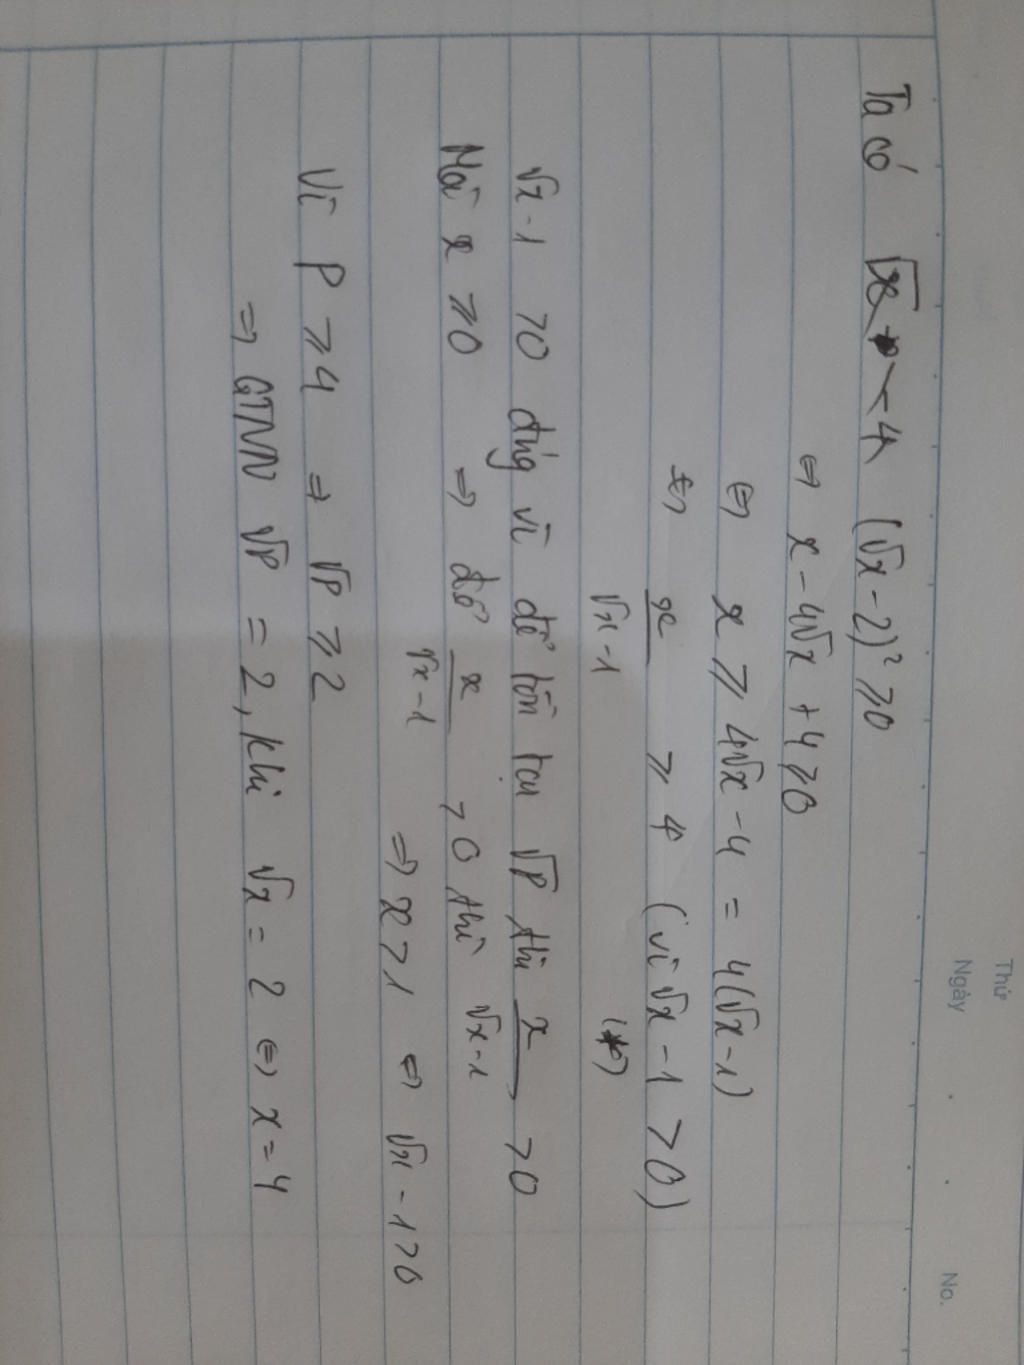 Thứ
Ngày
No.
Ta có (√x - 2)² ≥ 0
⇔ x - 4√x + 4 ≥ 0
⇔ x ≥ 4√x - 4 = 4(√x - 1)
⇔ x/(√x - 1) ≥ 4 (vì √x - 1 > 0) (*)
√x - 1 > 0 đúng vì để tồn tại √P thì x/(√x - 1) > 0
Mà x ≥ 0 ⇒ để x/(√x - 1) > 0 thì
⇒ x > 1 ⇔ √x - 1 > 0
Vì P ≥ 4 ⇒ √P ≥ 2
⇒ GTNN √P = 2, khi √x = 2 ⇔ x = 4